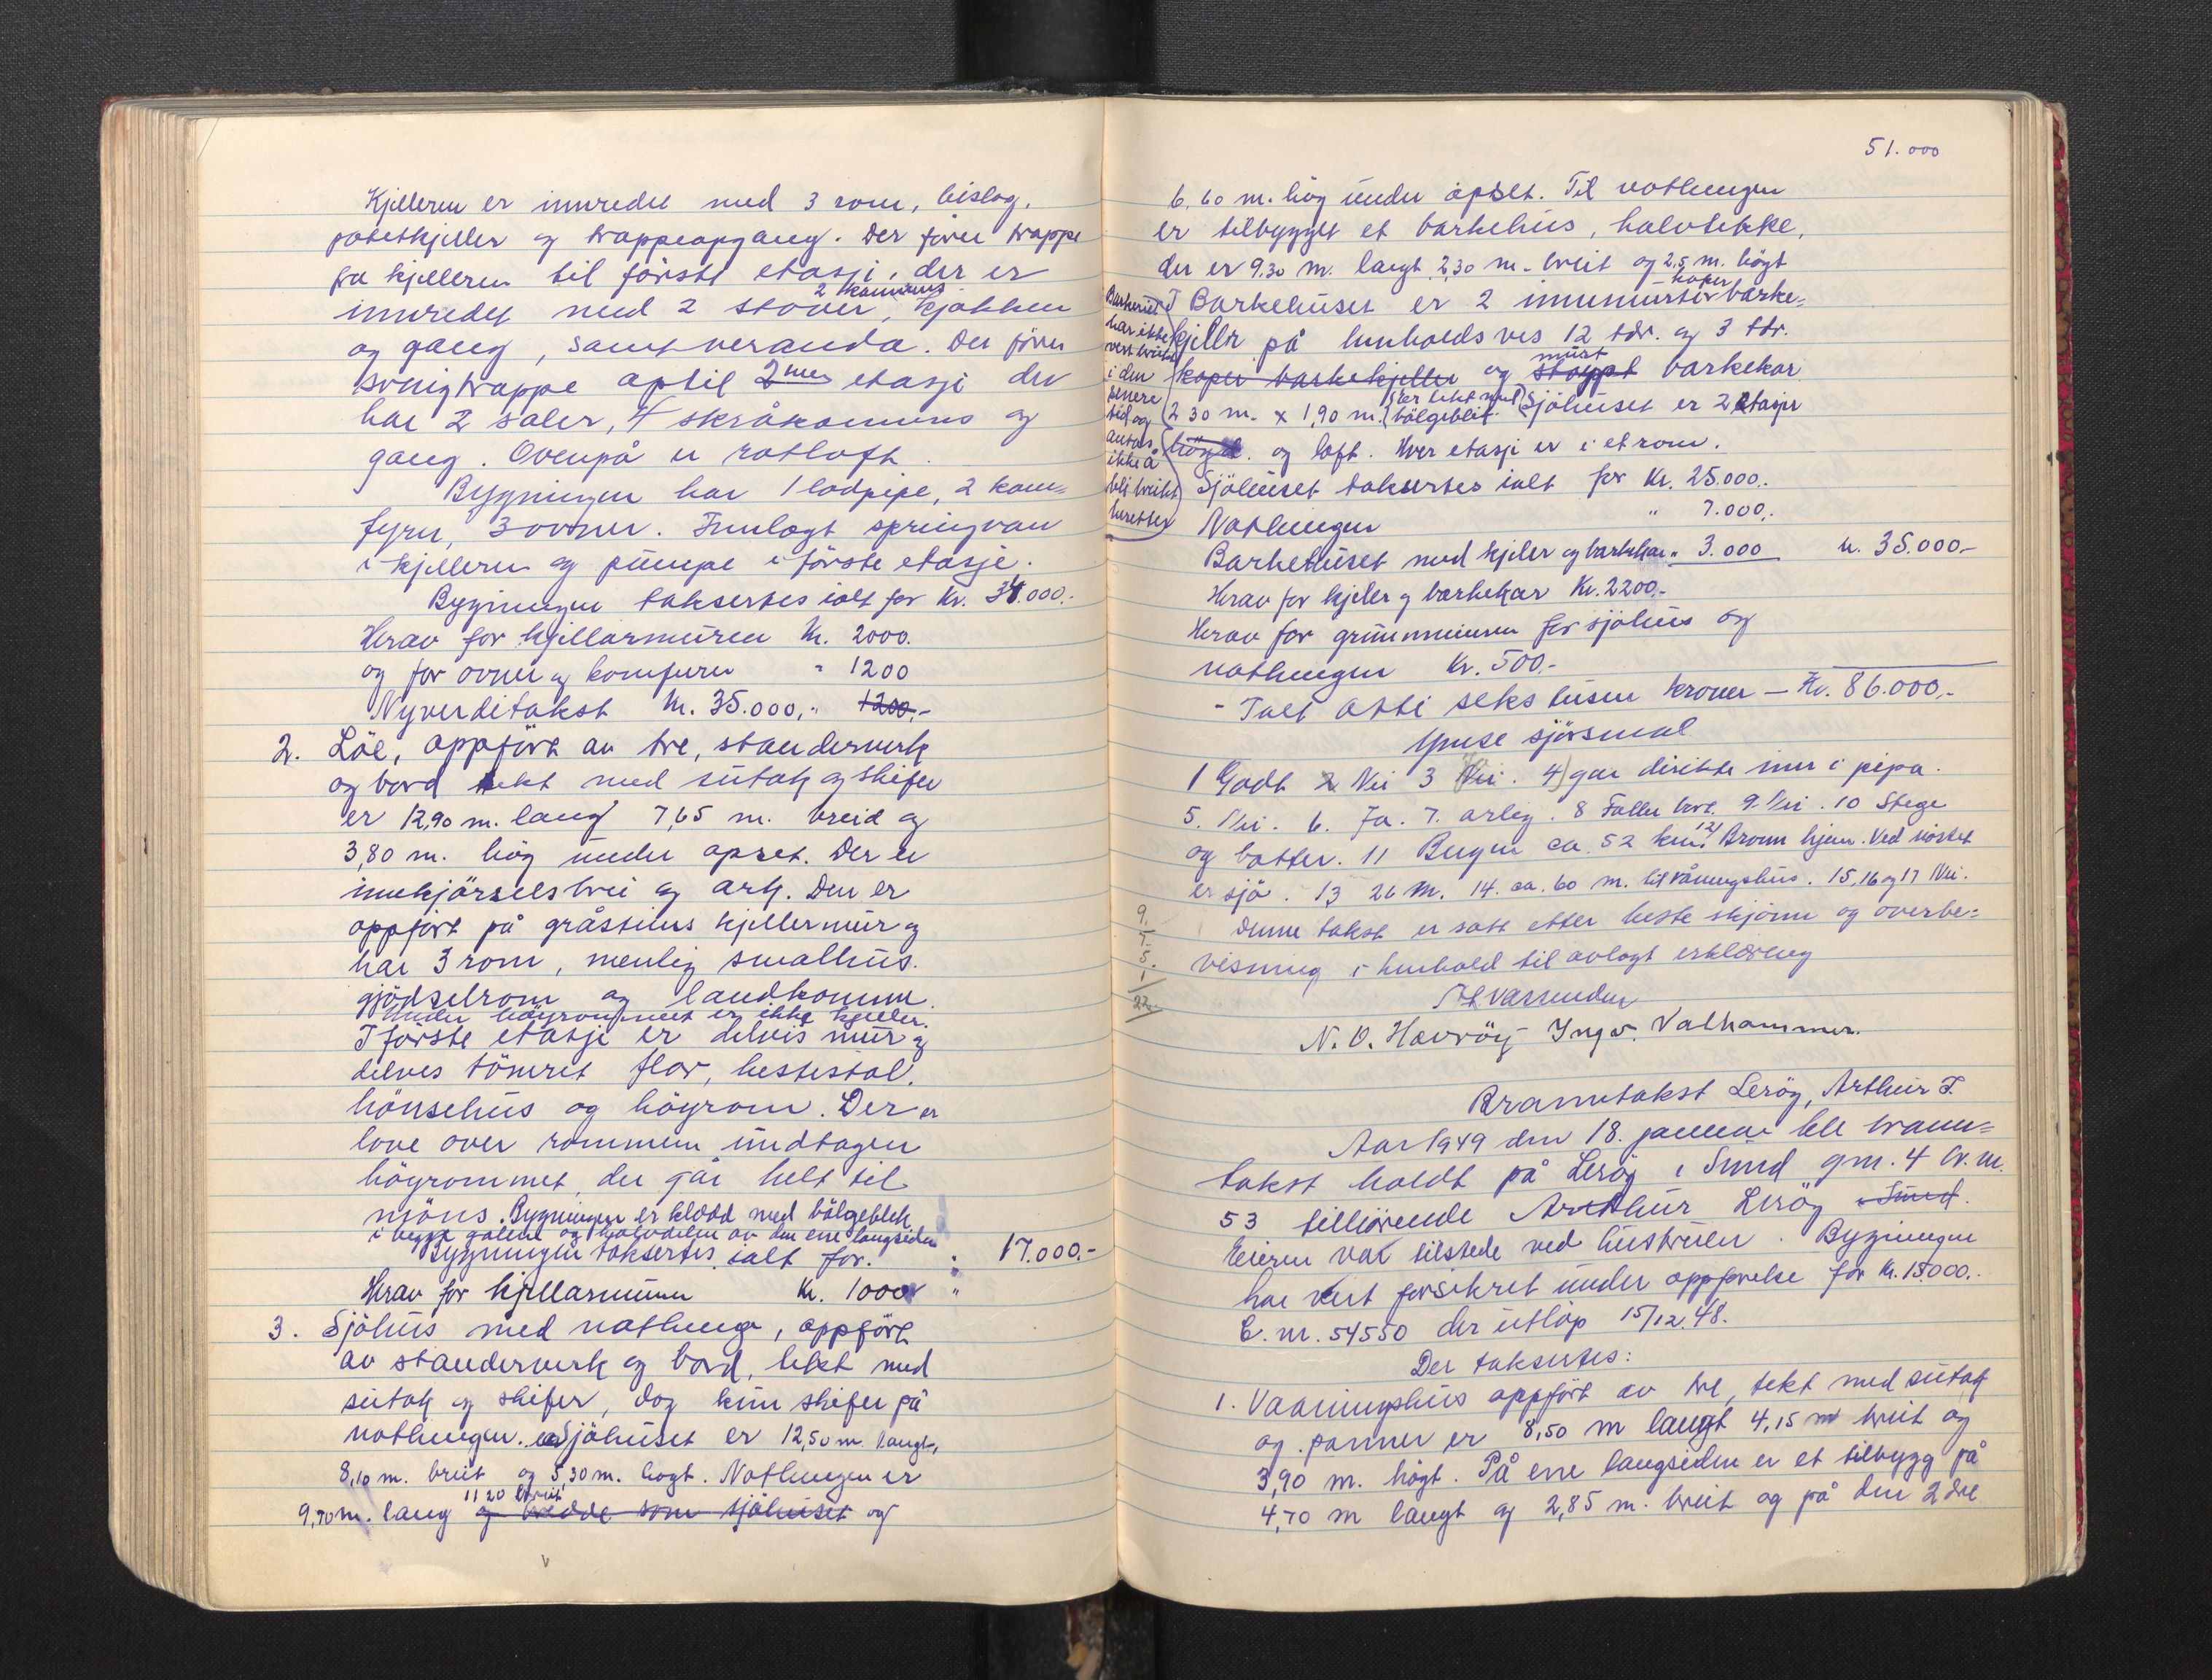 Kjelleren er innredet med 3 rom, bislag,
potetkjeller og trappeopgang. Der förer trappe
fra kjelleren til förste etasje, der er
2 kammers
innredet med 2 stover, kjökken
og gang, samt veranda. Der förer
svingtrappe optil 2nen etasje der
har 2 saler, 4 skråkammers og
gang. Ovenpå er rotloft.
Bygningen har 1 lodpipe, 2 kom=
fyrer, 3 ovner. Innlagt springvan
i kjelleren og pumpe i förste etasje.
Bygningen taksertes ialt for Kr. 34.000.-
Herav for kjellarmuren Kr. 2000.
og for ovner og komfyrer " 1200
Nyverditakst Kr. 35.000,- 1200.-
2. Löe, oppfört av tre, standerverk
og bord tekt med sutak og skifer
er 12,90 m. lang 7,65 m. breid og
3,80 m. hög under opset. Der er
innkjörselsbrei og ark. Den er
oppfört på gråsteins kjellermur og
har 3 rom, nemlig smalhus.
gjödselrom og landkomme.
Under höyrommet er ikke kjeller.
I förste etasje er delvis mur og
delves tömret flor, hestestal,
hönsehus og höyrom. Der er
love over rommene undtagen
höyrommet, der går helt til
möns. Bygningen er kledd med bölgeblek
i begge gavlene og halvdelen av den ene langsiden
Bygningen taksertes ialt for. : 17.000.-
Herav for kjellarmuren Kr. 1000 "
3. Sjöhus med nothenge, oppfört
av standerverk og bord, tekt med
sutak og skifer, dog kun skifer på
nothengen. Sjöhuset er 12,50 m. langt,
8,10 m. breit og 5,30 m. hogt. Nothengen er
11 20 breit
9,70 m. lang og bredde som sjöhuset og
51.000
6,60 m. hög under opset. Til nothengen
er tilbygget et barkehus, halvtekke,
der er 9,30 m. langt 2,30 m. breit og 2,5 m. högt
koper
I Barkehuset er 2 innmurter barke=
kjeller på henholdsves 12 tdr. og 3 tdr.
murt
koper barkekjeller og stöypt barkekar
er tekt med
2 30 m. x 1,90 m. bölgeblik. Sjöhuset er 2 etasjer
högd. og loft. Hver etasje er i et rom.
Barkeriet
har ikke
vert brukt
i den
senere
tid og
antas
ikke å
bli brukt
heretter
Sjöhuset taksertes ialt for Kr. 25.000..
Nothengen " 7.000,.
Barkehuset med kjeler og barkekar " 3.000 kr. 35.000,-
Herav for kjeler og barkekar Kr. 2200.-
Herav for grunnmuren for sjöhus og
nothengen Kr. 500.-
- Ialt otti seks tusen kroner - Kr. 86.000,-
Ymse sjörsmal
1 Godt 2 Nei 3 Nei. 4) gar direkte inn i pipa.
5. Nei. 6. Ja. 7. arlig. 8 Faller bort. 9. Nei. 10 Stege
og botter. 11 Bergen ca. 52 km. 12) Bronn hjem. Ved nöstet
er sjö. 13 26 M. 14. ca. 60 m. til våningshus. 15, 16 og 17 Nei.
9.
7.
5.
1
22
Denne takst er satt etter beste skjönn og overbe=
visning i henhold til avlagt erklæring
N. O. Havröy Ingv. Valhammer.
Branntakst Leröy, Arthur J.
Aar 1949 den 18. januar ble brann=
takst holdt på Leröy i Sund gm. 4 br. nr.
53 tillörende Arthur Leröy i Sund.
Eieren var tilstede ved hustruen. Bygningen
har vert forsikret under oppförelse for Kr. 15000..
C. nr. 54550 der utlöp 15/12.48.
Der taksertes:
1. Vaaningshus oppfört av tre, tekt med sutak
og panner er 8,50 m langt 4,15 m breit og
3,90 m. högt. På ene langsiden er et tilbygg på
4,70 m langt og 2,85 m. breit og på den 2dre